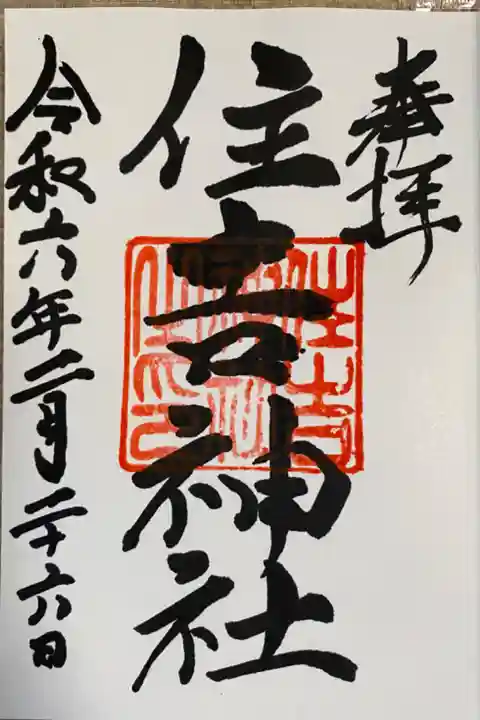 奉拝
住吉神社
令和六年二月二十六日